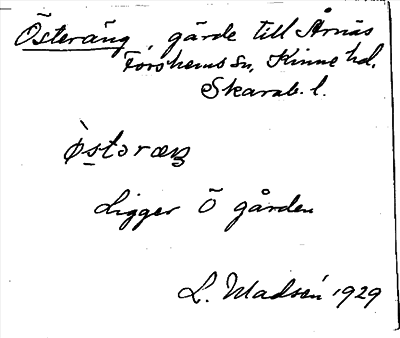 Österäng, gärde till Årnäs
Forshems sn, Kinne hd,
Skarab. l.
østəræŋ
Ligger Ö gården
L. Madsén 1929